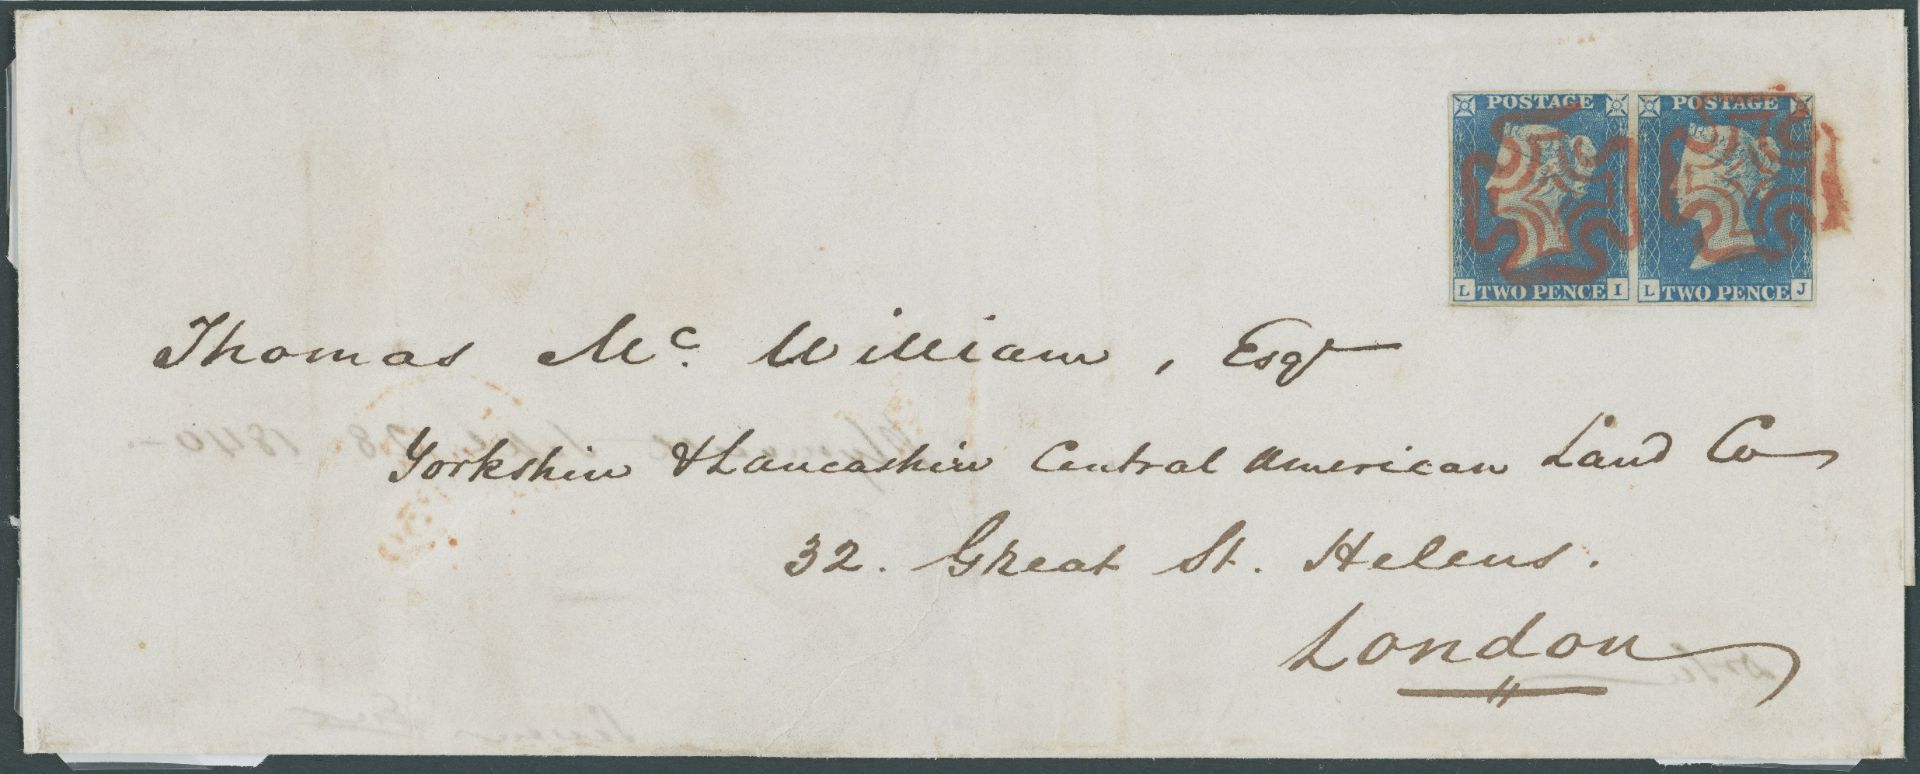 POSTAGE POSTAGE
L TWO PENCE I L TWO PENCE J
Thomas Mc. William, Esqr
Yorkshire & Lancashire Central American Land Co
32. Great St. Helens.
London